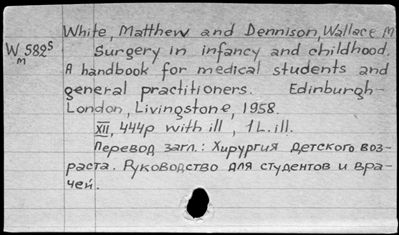 White, Matthew and Dennison, Wallace M
W 582s Surgery in infancy and childhood.
m
A handbook for medical students and
general practitioners. Edinburgh-
London, Livingstone, 1958.
XII, 444p with ill, 1 L. ill.
Перевод загл.: Хирургия детского воз-
раста. Руководство для студентов и вра-
чей.